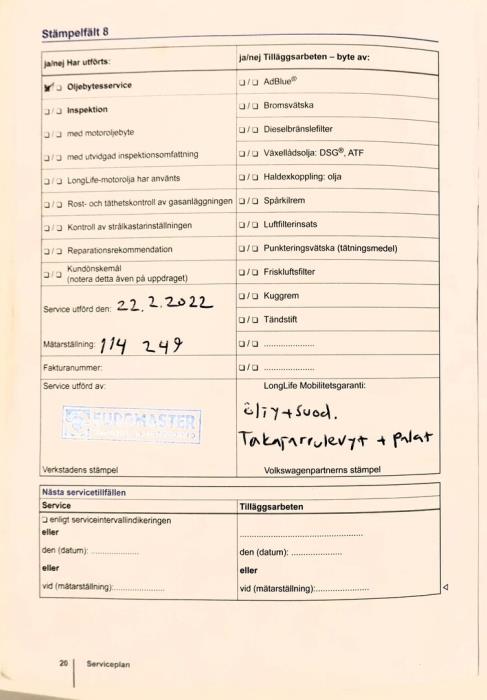 Stämpelfält 8
ja/nej Har utförts:
Oljebytesservice
Inspektion
med motoroljebyte
med utvidgad inspektionsomfattning
LongLife-motorolja har använts
Rost- och täthetskontroll av gasanläggningen
Kontroll av strålkastarinställningen
Reparationsrekommendation
Kundönskemål
(notera detta även på uppdraget)
Service utförd den: 22.2.2022
Mätarställning: 114 249
Fakturanummer:
Service utförd av:
EUROMASTER
Verkstadens stämpel
ja/nej Tilläggsarbeten – byte av:
AdBlue®
Bromsvätska
Dieselbränslefilter
Växellådsolja: DSG®, ATF
Haldexkoppling: olja
Spårkilrem
Luftfilterinsats
Punkteringsvätska (tätningsmedel)
Friskluftsfilter
Kuggrem
Tändstift
LongLife Mobilitetsgaranti:
öljy+suod.
Takajarrulevyt + palat
Volkswagenpartnerns stämpel
Nästa servicetillfällen
Service
enligt serviceintervallindikeringen
eller
den (datum):
eller
vid (mätarställning):
Tilläggsarbeten
den (datum):
eller
vid (mätarställning):
20 Serviceplan